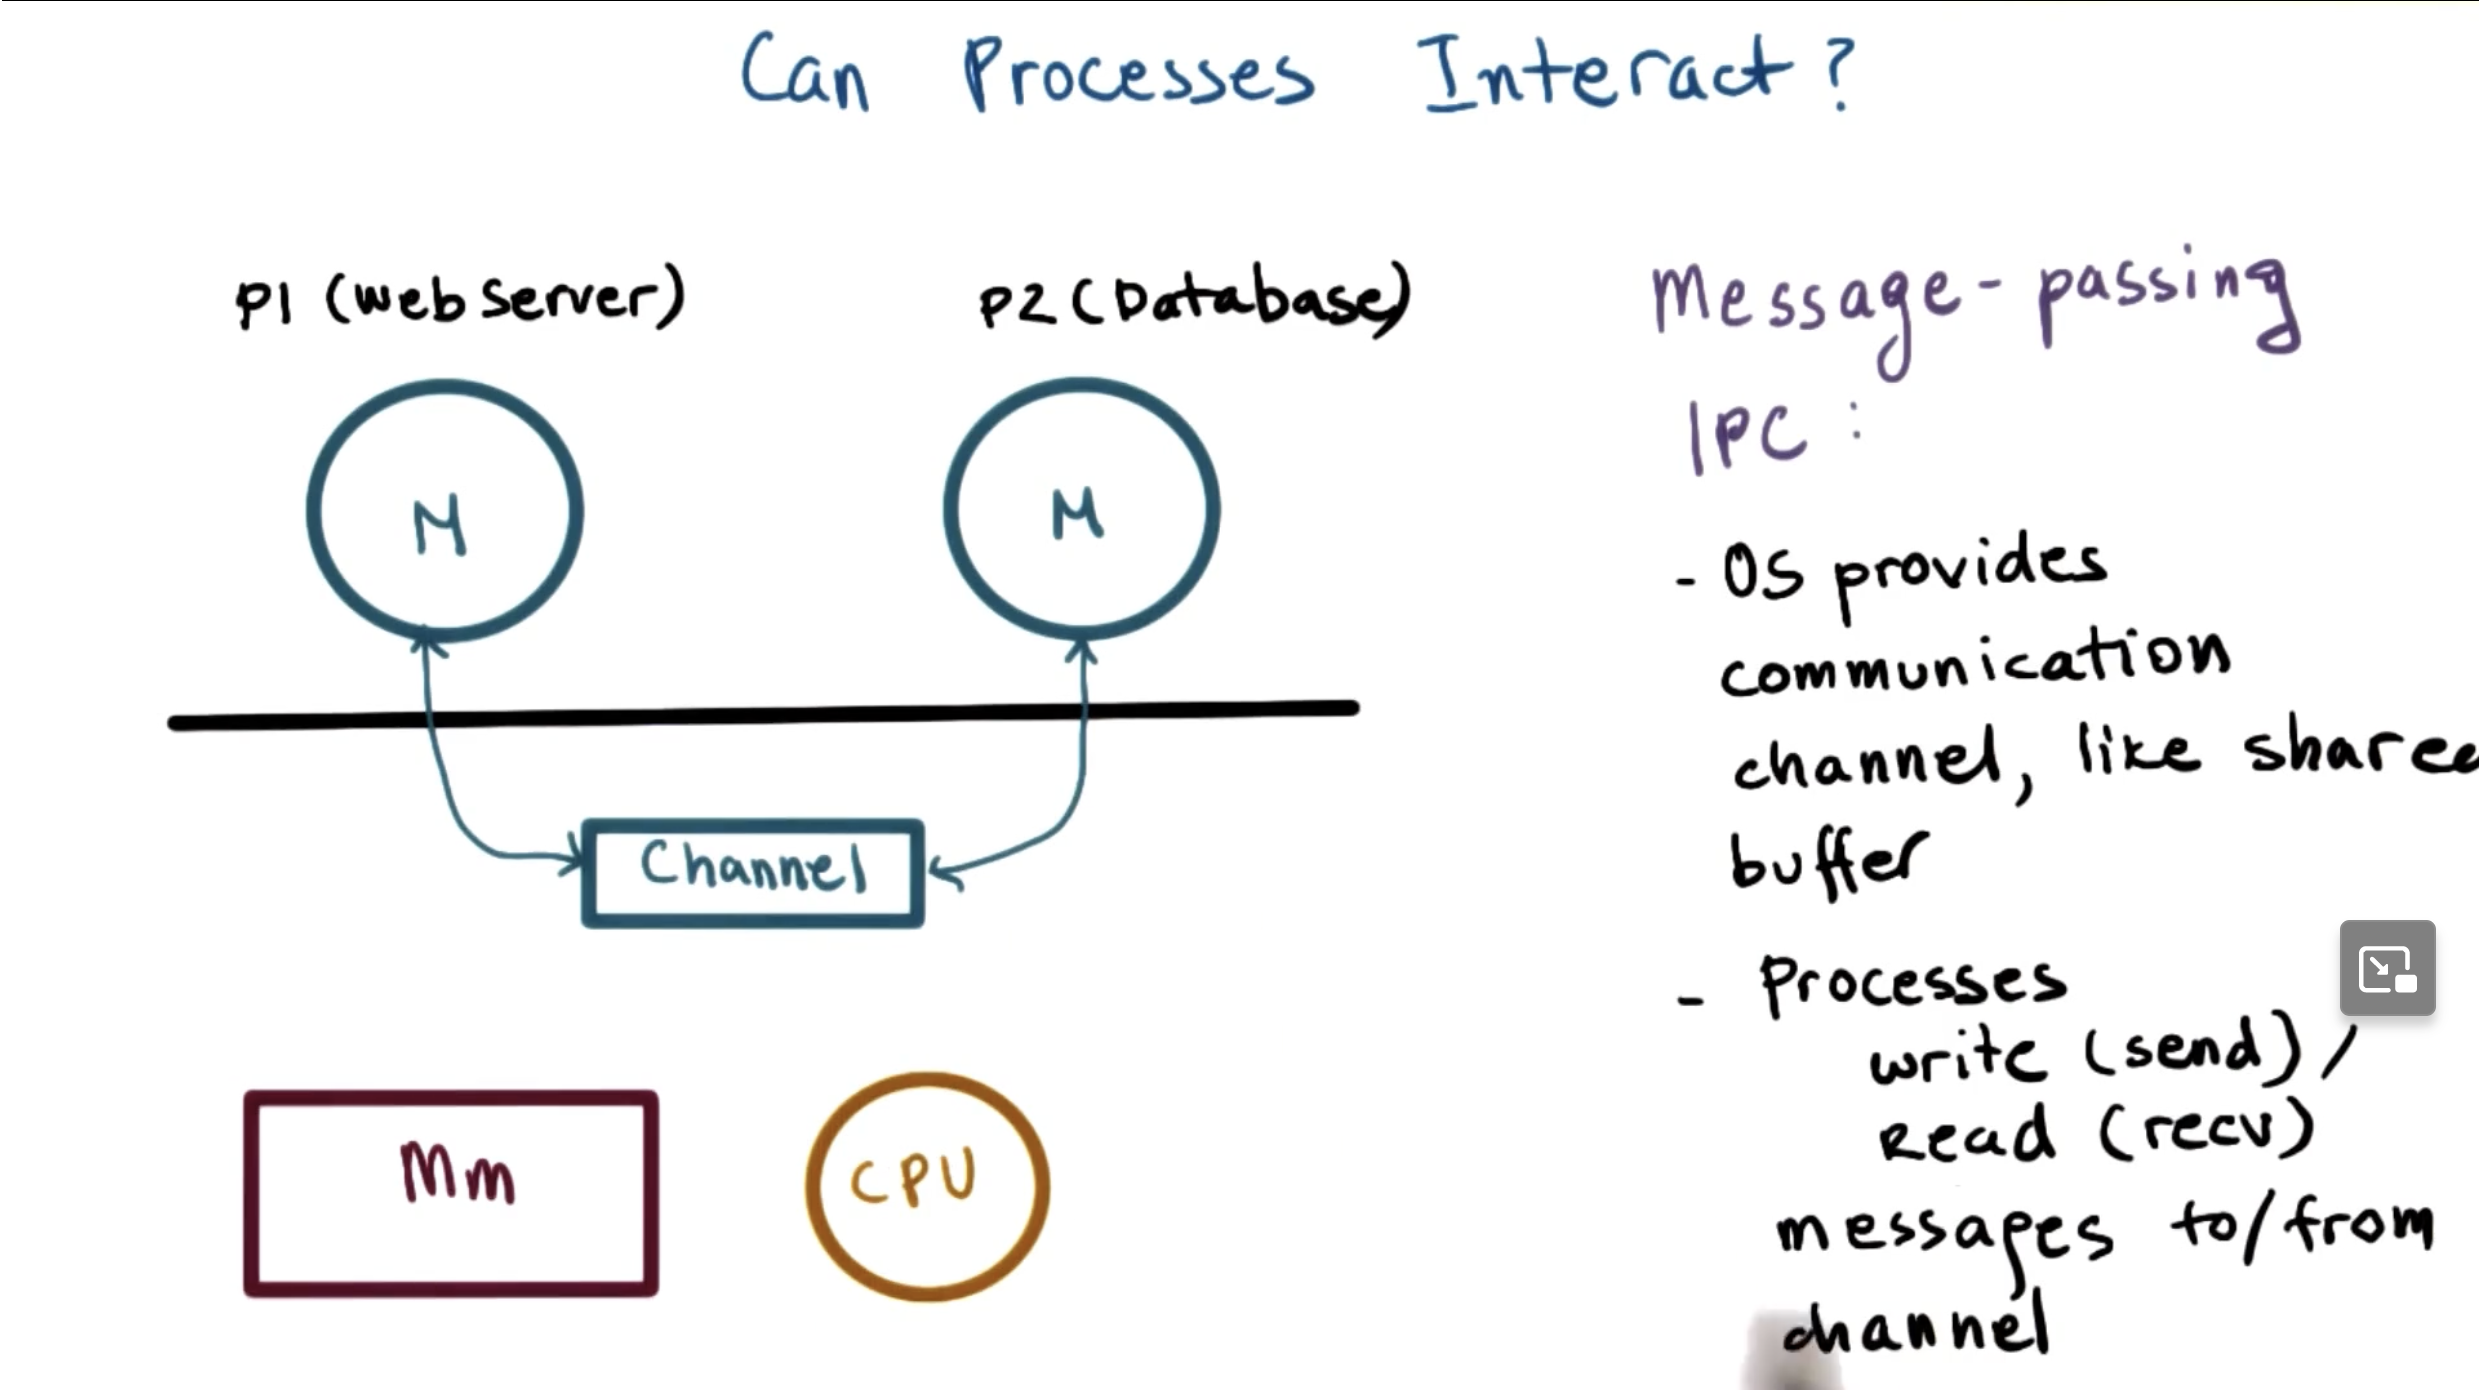 Can Processes Interact?
P1 (Web Server)
P2 (Database)
M
M
Channel
Mm
CPU
Message-passing
IPC :
- OS provides
communication
channel, like shared
buffer
- Processes
write (send) /
Read (recv)
messages to/from
channel